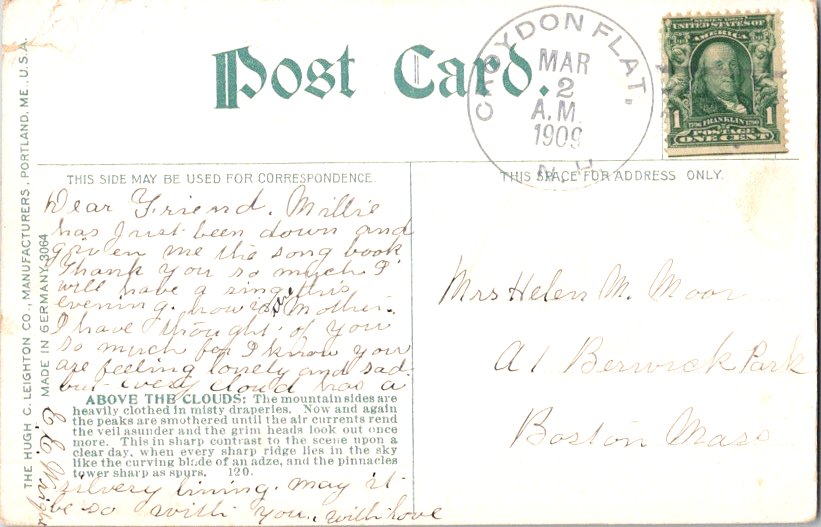 Post Card.
CROYDON FLAT,
MAR
2
A.M.
1909
N.H.
SERIES 1902
UNITED STATES OF AMERICA
1 1706 FRANKLIN 1790 1
POSTAGE
ONE CENT
THE HUGH C. LEIGHTON CO., MANUFACTURERS, PORTLAND, ME., U.S.A.
MADE IN GERMANY 3064
THIS SIDE MAY BE USED FOR CORRESPONDENCE.
Dear Friend. Millie
has just been down and
given me the song book
Thank you so much I
will have a sing this
evening. how is your Mother.
I have thought of you
so much for I know you
are feeling lonely and sad.
but every cloud has a
ABOVE THE CLOUDS: The mountain sides are
heavily clothed in misty draperies. Now and again
the peaks are smothered until the air currents rend
the veil asunder and the grim heads look out once
more. This in sharp contrast to the scene upon a
clear day, when every sharp ridge lies in the sky
like the curving blade of an adze, and the pinnacles
tower sharp as spurs. 120.
silvery lining. may it
be so with you. with love
E. E. Wright
THIS SPACE FOR ADDRESS ONLY.
Mrs Helen M. Moor
A 1 Berwick Park
Boston Mass